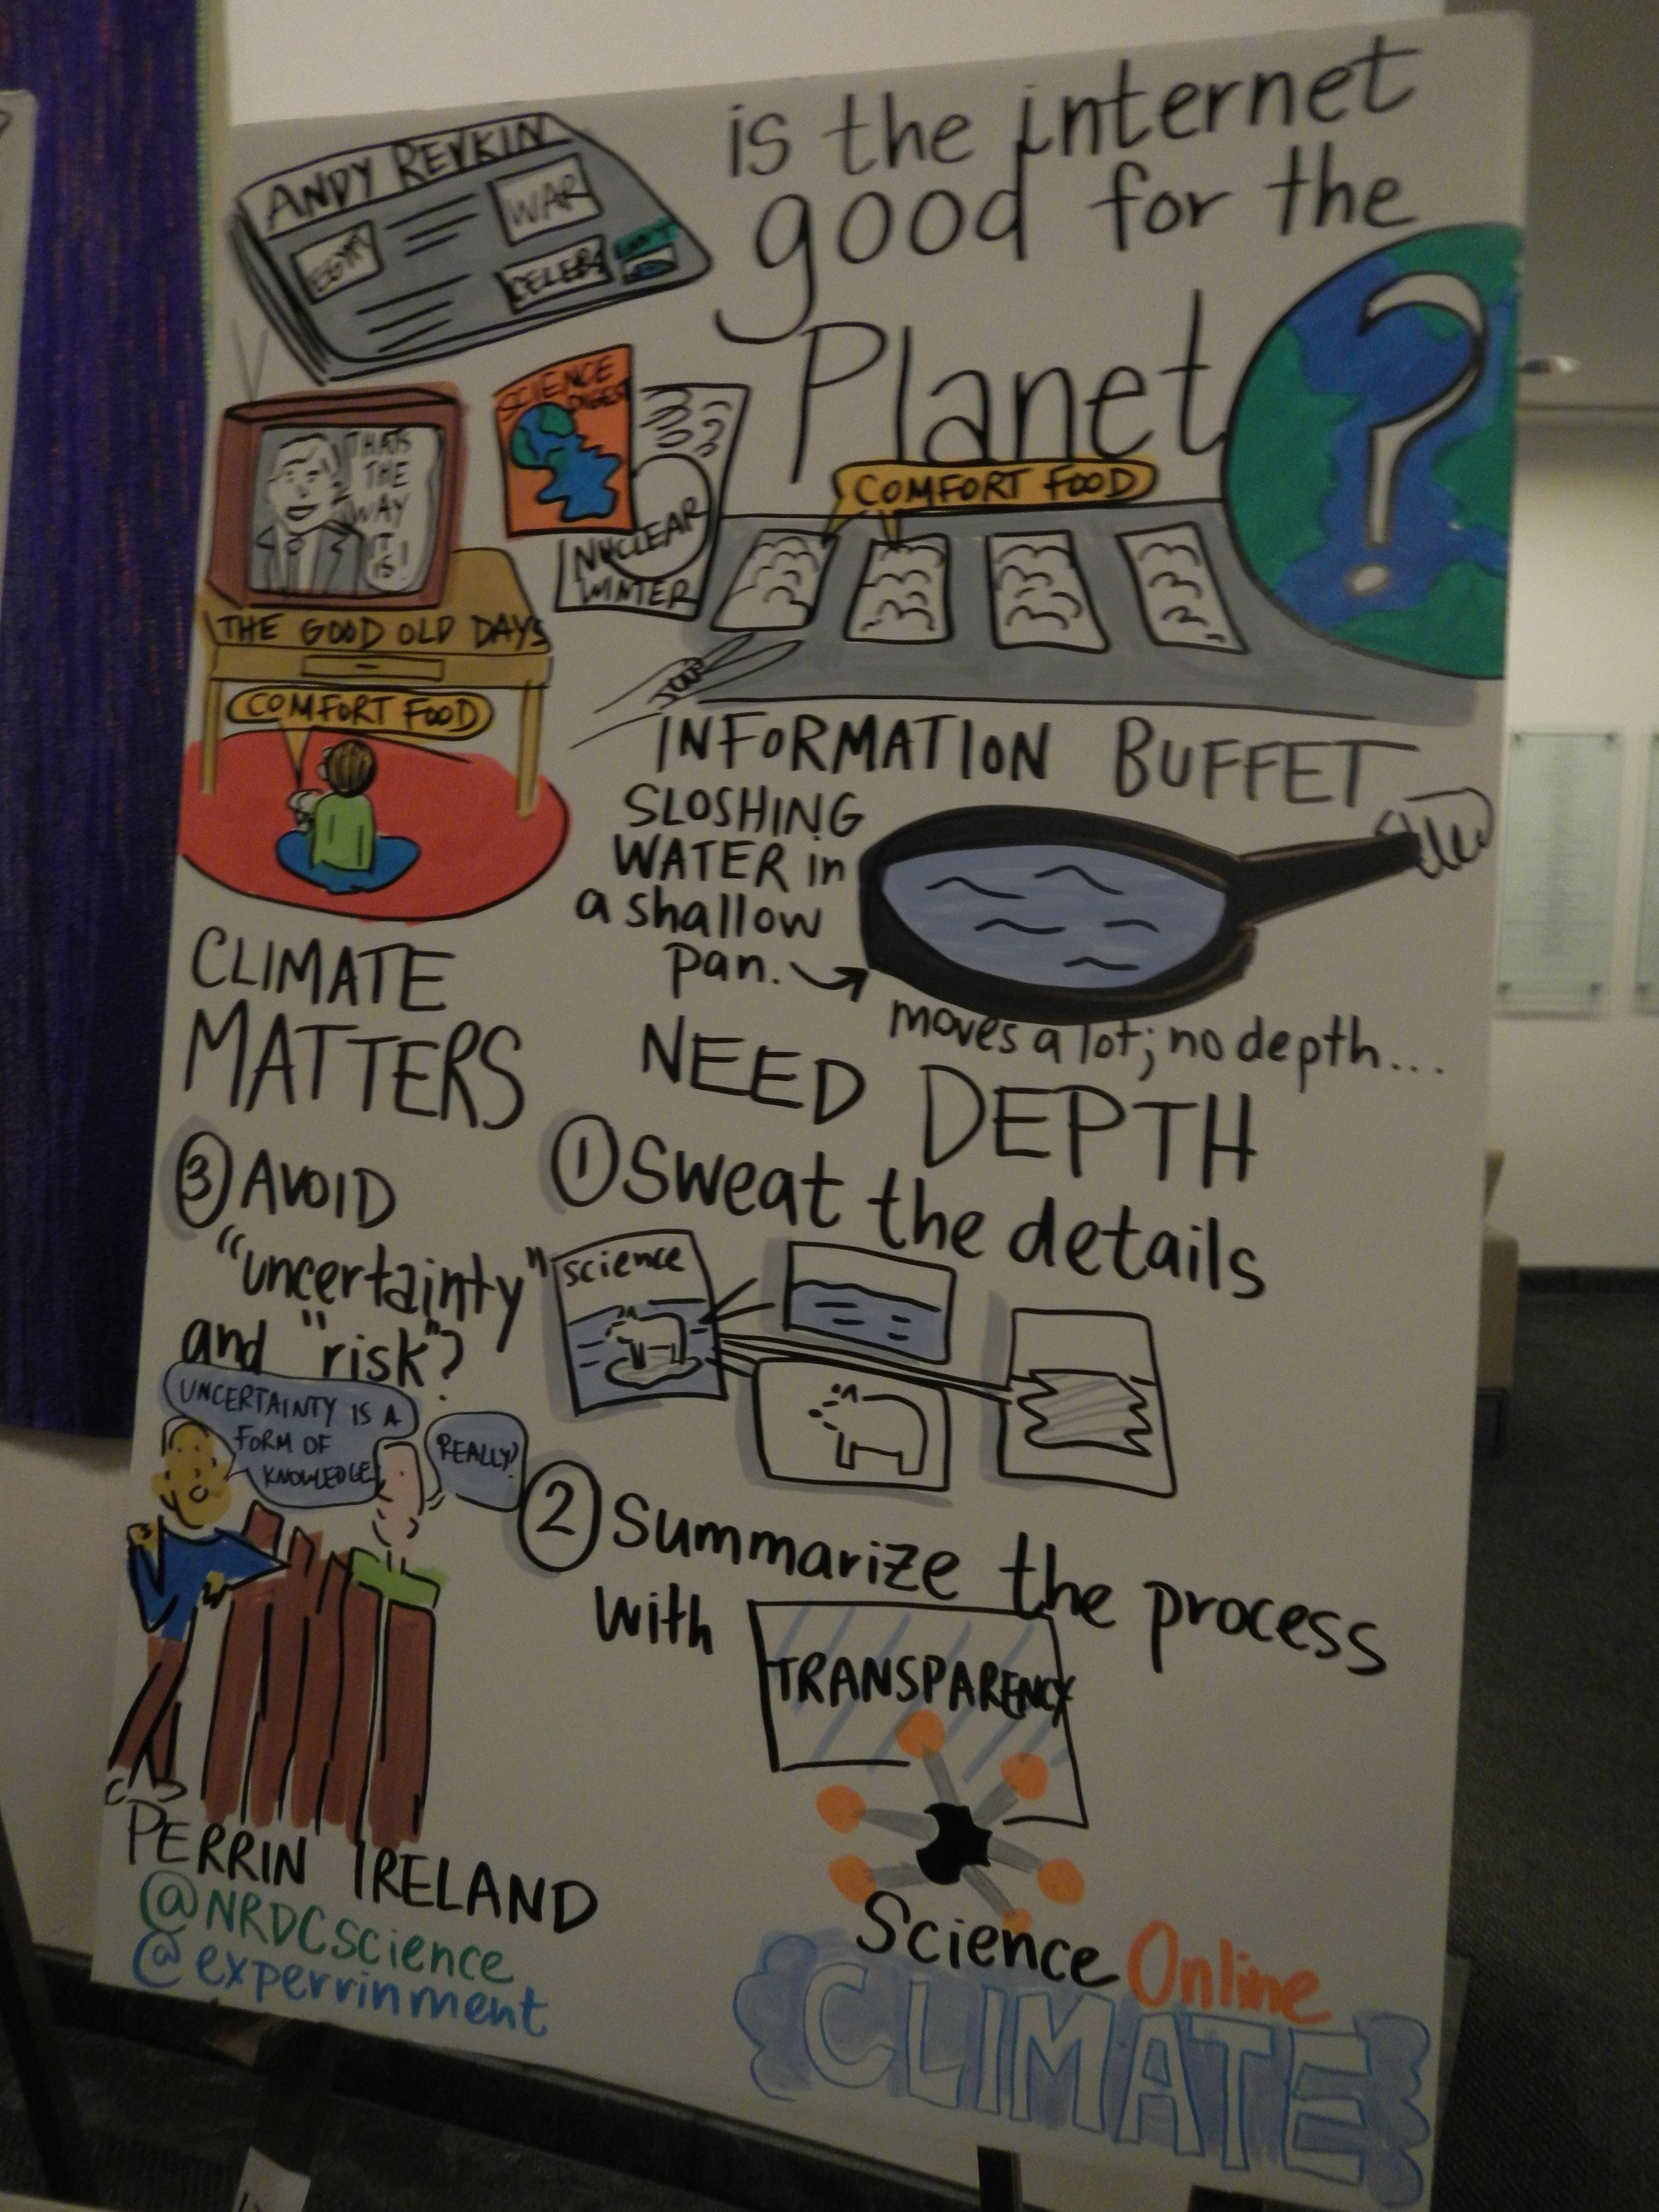 ANDY REVKIN
EGYPT
WAR
CELEBS
is the internet
good for the
Planet
?
SCIENCE
DIGEST
NUCLEAR
WINTER
THATS
THE
WAY
IT
IS!
THE GOOD OLD DAYS
COMFORT FOOD
COMFORT FOOD
INFORMATION BUFFET
SLOSHING
WATER in
a shallow
pan.
moves a lot; no depth...
CLIMATE
MATTERS
NEED DEPTH
① Sweat the details
science
② Summarize the process
with TRANSPARENCY
③ AVOID
"uncertainty"
and "risk"?
UNCERTAINTY IS A
FORM OF
KNOWLEDGE
REALLY?
PERRIN IRELAND
@NRDCscience
@experrinment
Science Online
CLIMATE